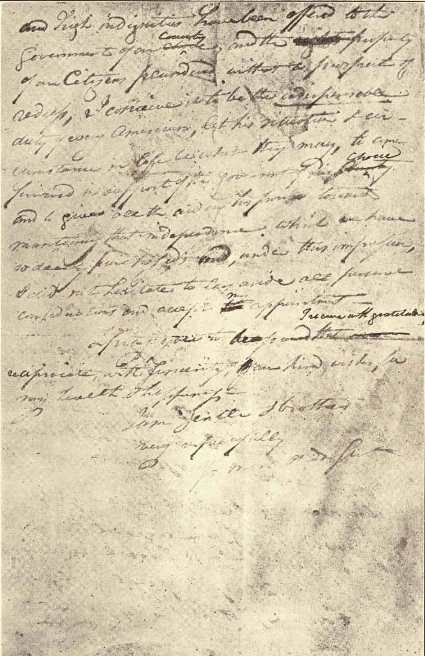 and high indignities have been offered to the
Government of our Country and the property
of our Citizens plundered without a prospect of
redress, I conceive it to be the indispensable
duty of every American, let his situation & cir-
cumstance in life be what they may, to come
forward in support of the Government of his choice
and to give all the aid in his power towards
maintaining that independence which we have
so dearly purchased; and, under this impression,
I did not hesitate to lay aside all personal
considerations and accept my appointment
I receive with gratitude &
reciprocate with sincerity your kind wishes for
my health & happiness
I am Gentlen & brothers
very respectfully